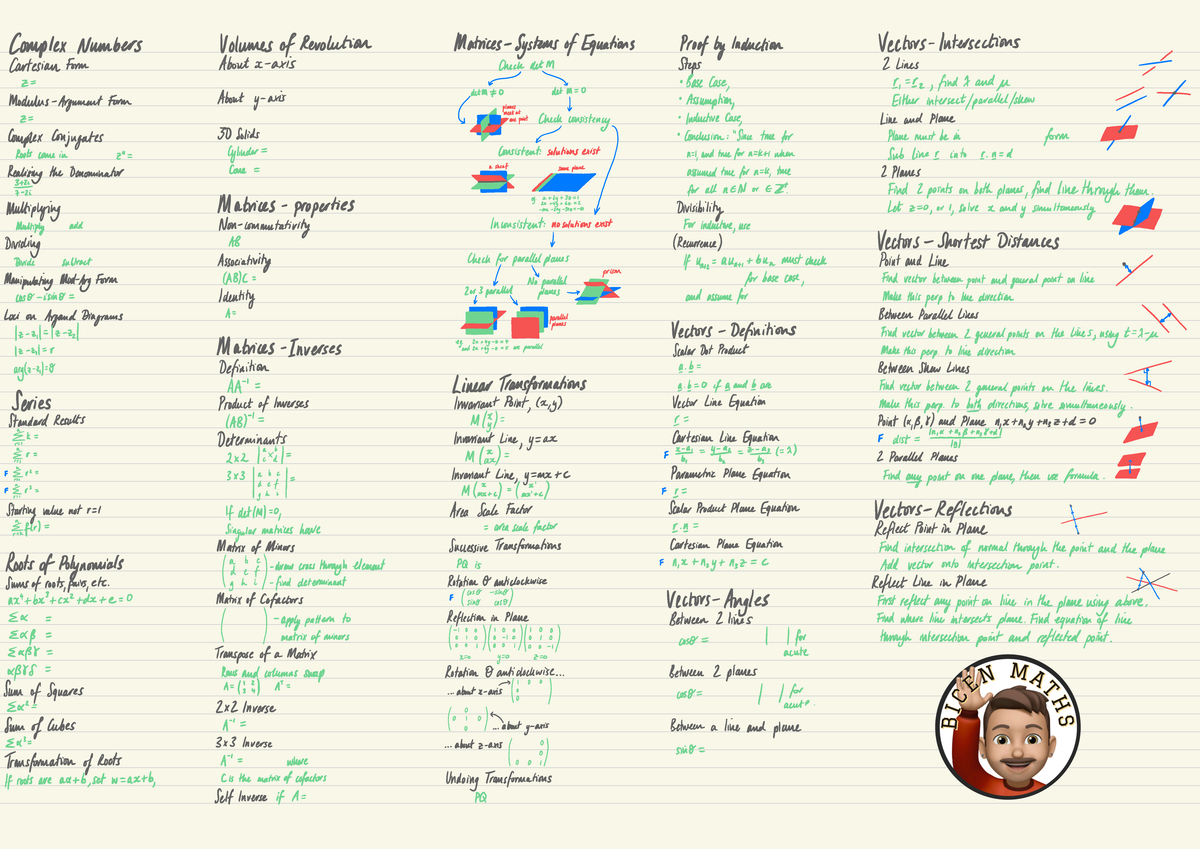 Complex Numbers
Cartesian Form
z=
Modulus-Argument Form
z=
Complex Conjugates
Roots come in z*=
Realising the Denominator
3+2i/7-2i
Multiplying
Multiply add
Dividing
Divide subtract
Manipulating Mod-Arg Form
cosθ-isinθ=
Loci on Argand Diagrams
|z-z₁|=|z-z₂|
|z-z₁|=r
arg(z-z₁)=θ
Series
Standard Results
Σk=
Σr=
F Σr²=
F Σr³=
Starting value not r=1
Σf(r)=
Roots of Polynomials
Sums of roots, pairs, etc.
ax⁴+bx³+cx²+dx+e=0
Σα =
Σαβ =
Σαβγ =
αβγδ =
Sum of Squares
Σα²=
Sum of Cubes
Σα³=
Transformation of Roots
If roots are aα+b, set w=ax+b,
Volumes of Revolution
About x-axis
About y-axis
3D Solids
Cylinder =
Cone =
Matrices - properties
Non-commutativity
AB
Associativity
(AB)C =
Identity
A=
Matrices-Inverses
Definition
AA⁻¹ =
Product of Inverses
(AB)⁻¹ =
Determinants
2x2 |a b|=
|c d|
3x3 |a b c|
|d e f| =
|g h i|
If det(M)=0,
Singular matrices have
Matrix of Minors
(a b c) -draw cross through element
(d e f)
(g h i) -find determinant
Matrix of Cofactors
( ) -apply pattern to
matrix of minors
Transpose of a Matrix
Rows and columns swap
A=(1 2) Aᵀ=
(3 4)
2x2 Inverse
A⁻¹ =
3x3 Inverse
A⁻¹ = where
C is the matrix of cofactors
Self Inverse if A=
Matrices-Systems of Equations
Check det M
det M≠0 det M=0
planes
meet at
one point
Check consistency
Consistent: solutions exist
a sheaf same plane
Inconsistent: no solutions exist
Check for parallel planes
2 or 3 parallel No parallel
planes
prism
parallel
planes
Linear Transformations
Invariant Point, (x,y)
M(x) =
(y)
Invariant Line, y=ax
M(x) =
(ax)
Invariant Line, y=mx+c
M(x) = (x')
(mx+c) (mx'+c)
Area Scale Factor
= area scale factor
Successive Transformations
PQ is
Rotation θ anticlockwise
F (cosθ -sinθ)
(sinθ cosθ)
Reflection in Plane
(-1 0 0)(1 0 0)(1 0 0)
(0 1 0)(0 -1 0)(0 1 0)
(0 0 1)(0 0 1)(0 0 -1)
x=0 y=0 z=0
Rotation θ anticlockwise...
...about x-axis (1 0 0)
(0 )
(0 )
( 0 )
(0 1 0) ...about y-axis
( 0 )
...about z-axis ( 0)
( 0)
(0 0 1)
Undoing Transformations
PQ
Proof by Induction
Steps
• Base Case,
• Assumption,
• Inductive Case,
• Conclusion: "Since true for
n=1, and true for n=k+1 when
assumed true for n=k, true
for all n∈N or ∈Z⁺.
Divisibility
For inductive, use
(Recurrence)
If uₙ₊₂ = auₙ₊₁ + buₙ must check
for base case,
and assume for
Vectors - Definitions
Scalar Dot Product
a.b=
a.b=0 if a and b are
Vector Line Equation
r=
Cartesian Line Equation
F (x-a₁)/b₁ = (y-a₂)/b₂ = (z-a₃)/b₃ (=λ)
Parametric Plane Equation
F r=
Scalar Product Plane Equation
r.n=
Cartesian Plane Equation
F n₁x+n₂y+n₃z=c
Vectors-Angles
Between 2 lines
cosθ = | | for
acute
Between 2 planes
cosθ= | | for
acute.
Between a line and plane
sinθ =
Vectors-Intersections
2 Lines
r₁=r₂, find λ and μ
Either intersect/parallel/skew
Line and Plane
Plane must be in form
Sub Line r into r.n=d
2 Planes
Find 2 points on both planes, find line through them.
Let z=0, or 1, solve x and y simultaneously
Vectors-Shortest Distances
Point and Line
Find vector between point and general point on line
Make this perp to line direction
Between Parallel Lines
Find vector between 2 general points on the lines, using t=λ-μ
Make this perp. to line direction
Between Skew Lines
Find vector between 2 general points on the lines.
Make this perp. to both directions, solve simultaneously.
Point (α,β,γ) and Plane n₁x+n₂y+n₃z+d=0
F dist = |n₁α+n₂β+n₃γ+d|/|n|
2 Parallel Planes
Find any point on one plane, then use formula.
Vectors-Reflections
Reflect Point in Plane
Find intersection of normal through the point and the plane
Add vector onto intersection point.
Reflect Line in Plane
First reflect any point on line in the plane using above.
Find where line intersects plane. Find equation of line
through intersection point and reflected point.
BICEN MATHS